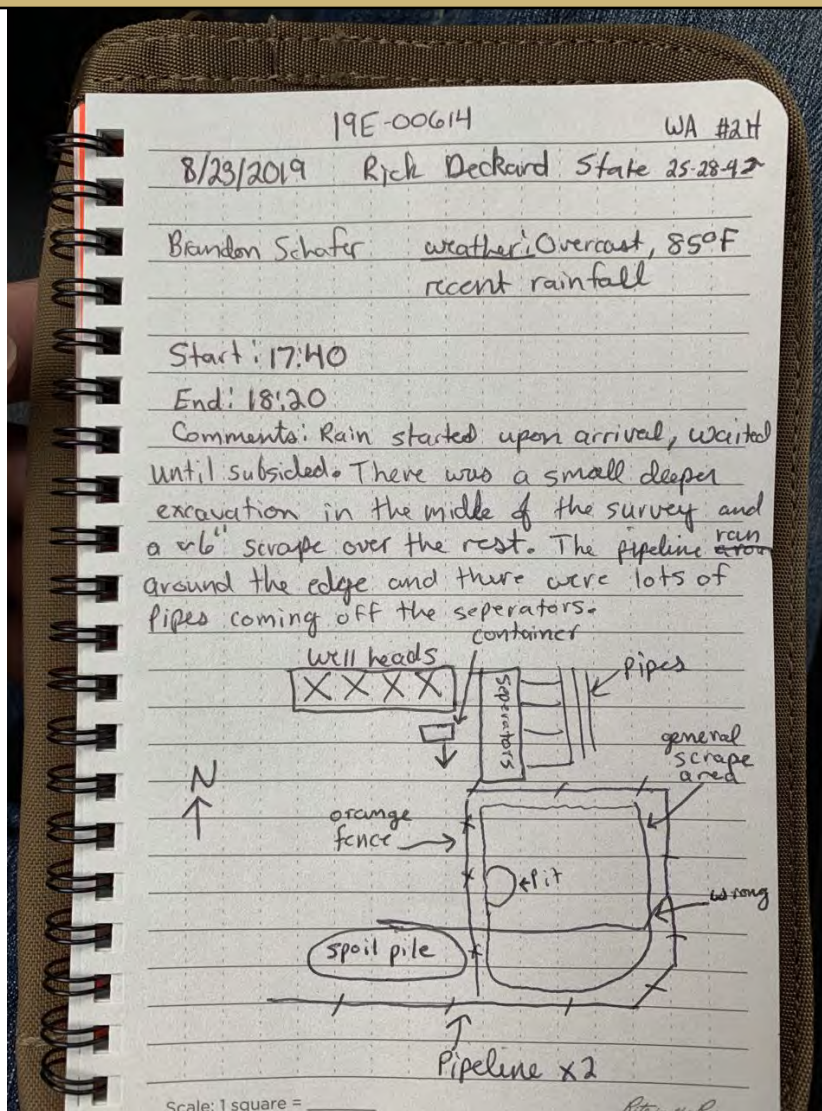 19E-00614
WA #2H
8/23/2019 Rick Deckard State 25-28-42
Brandon Schafer weather: Overcast, 85°F
recent rainfall
Start: 17:40
End: 18:20
Comments: Rain started upon arrival, waited
until subsided. There was a small deeper
excavation in the middle of the survey and
a ~6" scrape over the rest. The pipeline ran
around the edge and there were lots of
Pipes coming off the seperators.
container
well heads
X X X X
Seperators
Pipes
general
scrape
area
N
orange
fence
Pit
wrong
spoil pile
Pipeline x2
Scale: 1 square =